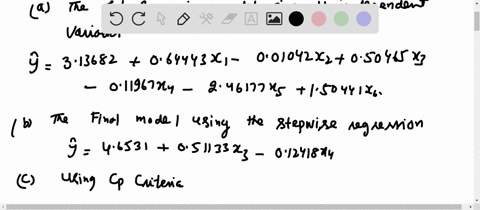 (a) The
dent
Variou
ŷ = 3.13682 + 0.64443x₁ - 0.01042x₂ + 0.50465x₃
- 0.11967x₄ - 2.46177x₅ + 1.50441x₆.
(b) The Final model using the stepwise regression
ŷ = 4.6531 + 0.51133x₃ - 0.12418x₄
(C) Using Cp Criteria